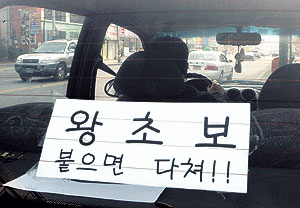 왕초보
붙으면 다쳐!!